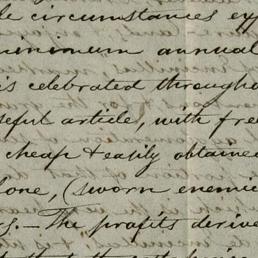 le circumstances exp
minimum annual
is celebrated througho
seful article, with free
cheap & easily obtained
lone, (sworn enemie
s. — The profits derive